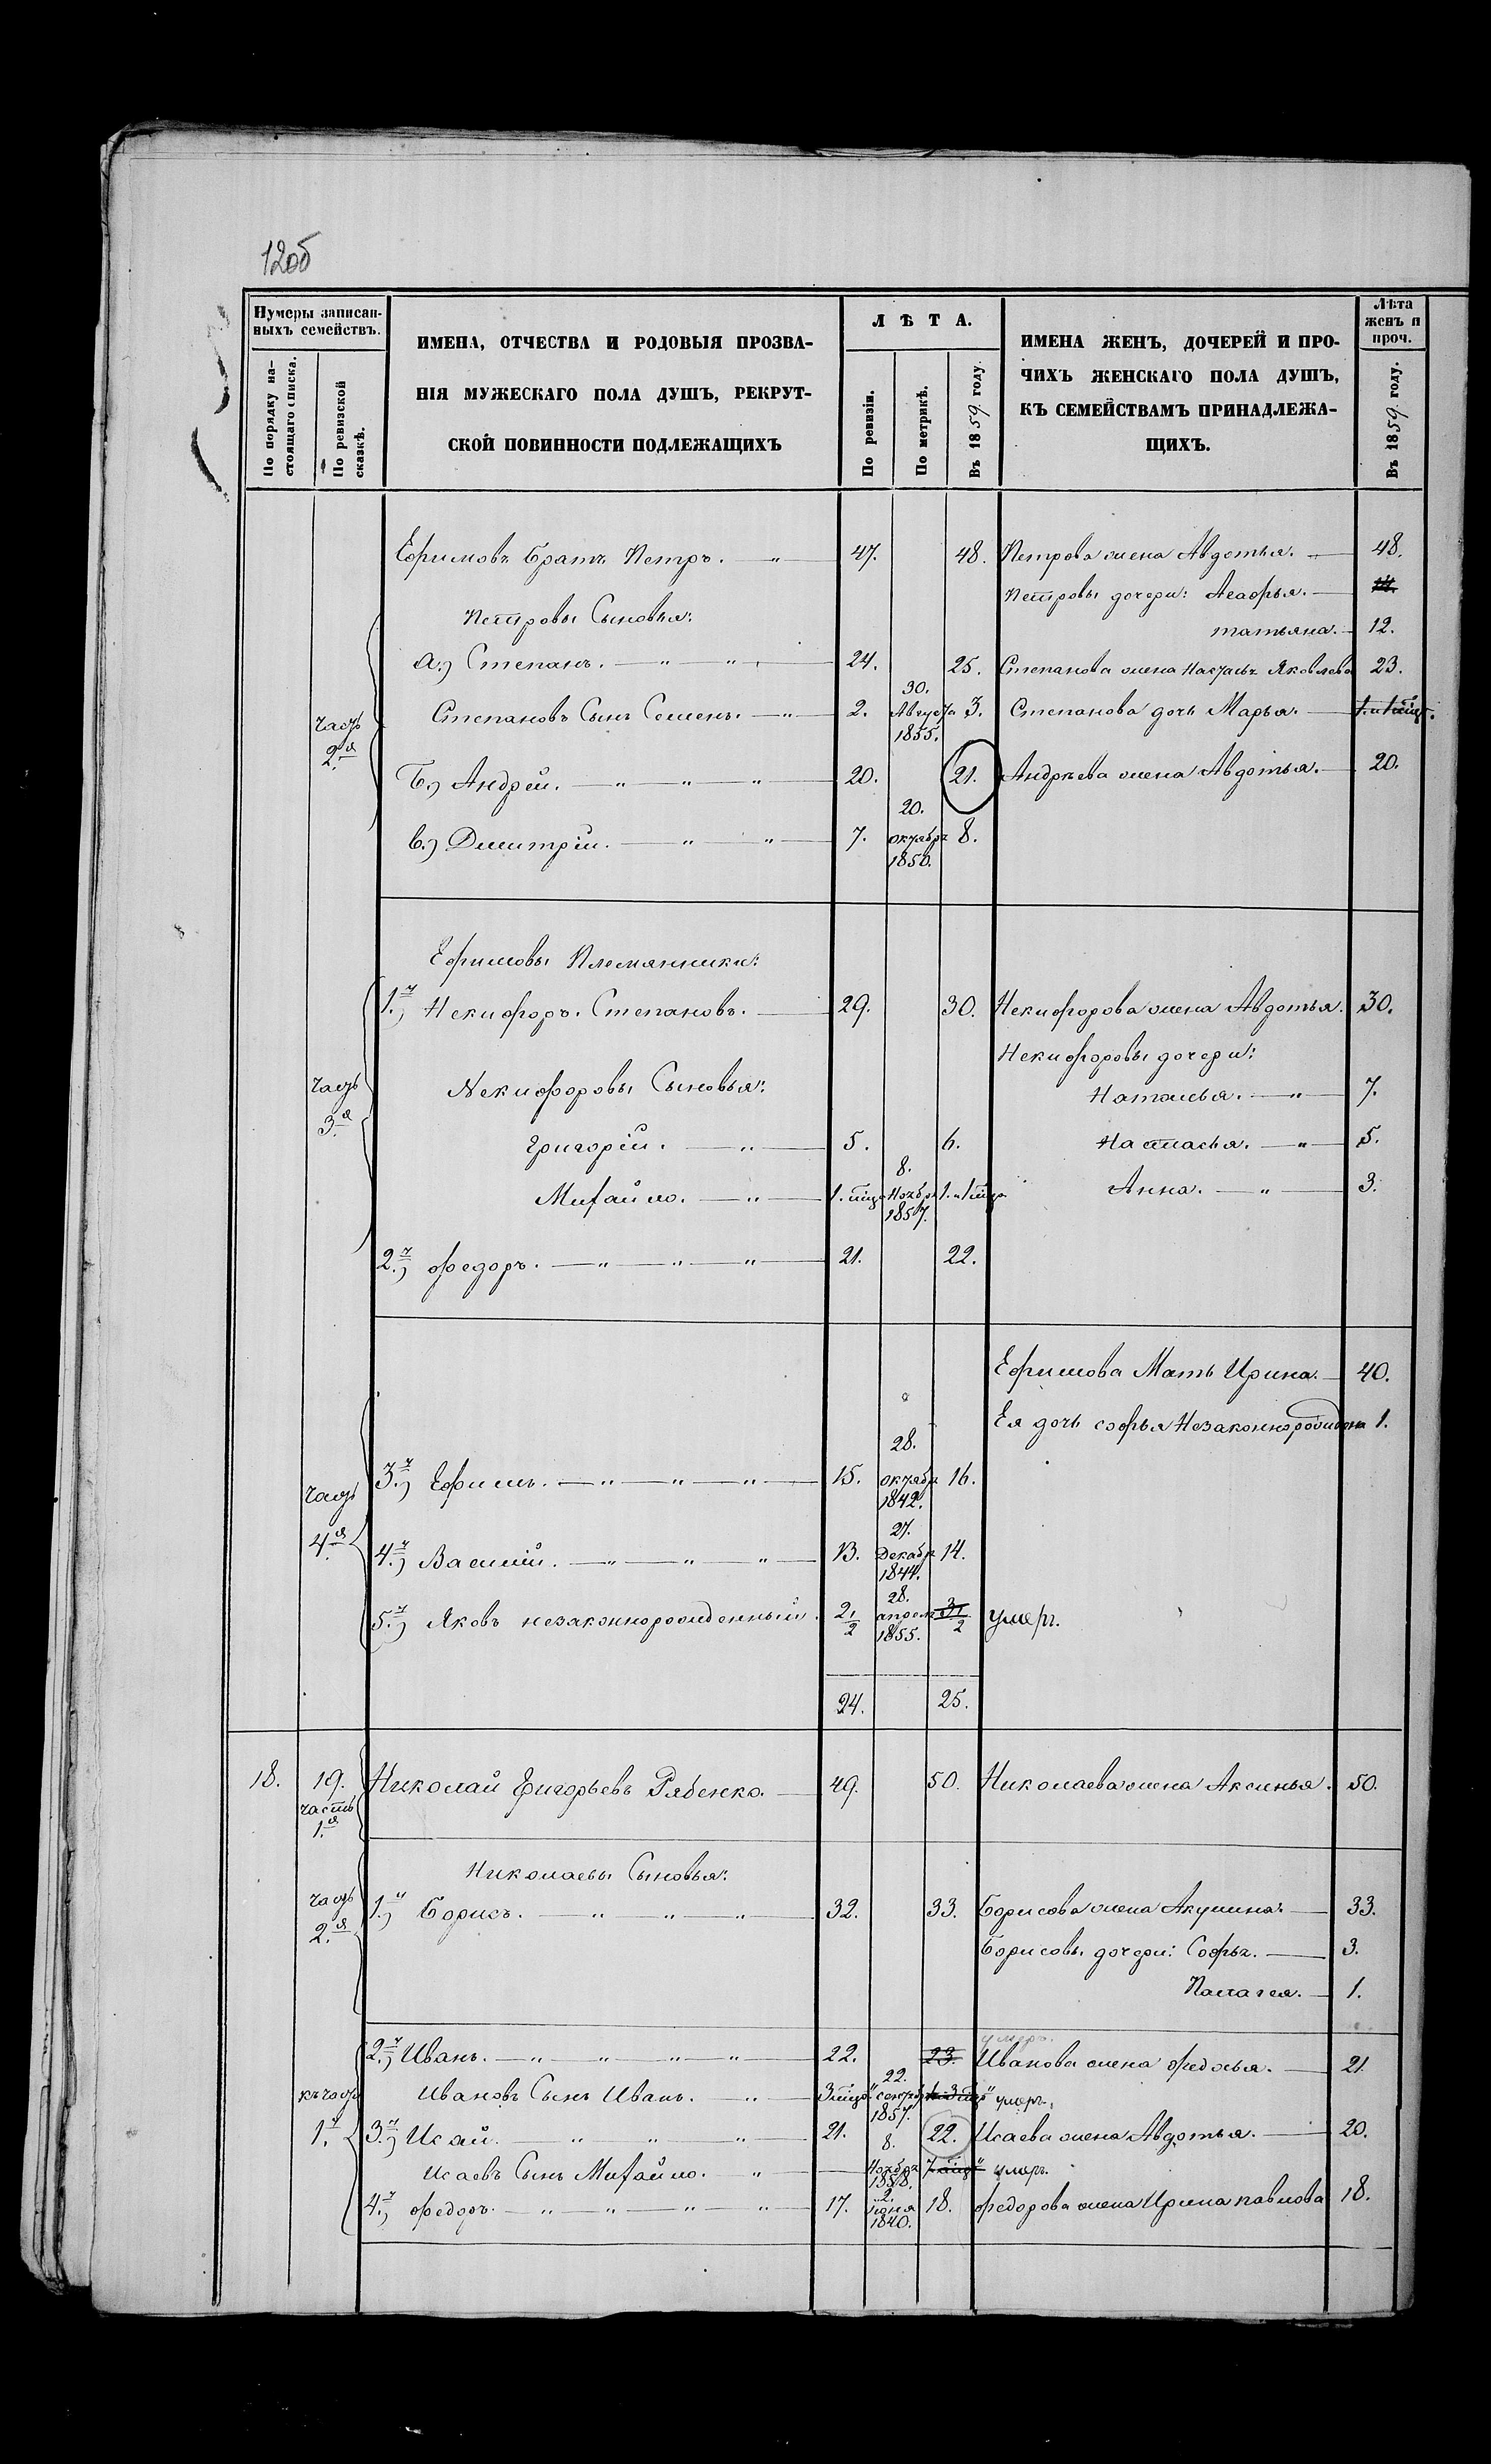 120б
Нумеры записан-
ныхъ семействъ.
По порядку на-
стоящаго списка.
По ревизской
сказкѣ.
ИМЕНА, ОТЧЕСТВА И РОДОВЫЯ ПРОЗВА-
НІЯ МУЖЕСКАГО ПОЛА ДУШЪ, РЕКРУТ-
СКОЙ ПОВИННОСТИ ПОДЛЕЖАЩИХЪ
ЛѢТА.
По ревизіи.
По метрикѣ.
Въ 1859 году.
ИМЕНА ЖЕНЪ, ДОЧЕРЕЙ И ПРО-
ЧИХЪ ЖЕНСКАГО ПОЛА ДУШЪ,
КЪ СЕМЕЙСТВАМЪ ПРИНАДЛЕЖА-
ЩИХЪ.
Лѣта
женъ и
проч.
Въ 1859 году.
Ефимовъ Братъ Петръ. — " 47. 48. Петрова жена Авдотья. — 48.
Петровы дочери: Агафья. — 14.
Петровы Сыновья:
татьяна. — 12.
а.) Степанъ. — " — " — 24. 25. Степанова жена Настасья Яковлева 23.
часть 2.я
Степановъ Сынъ Семенъ. — " — 2. 30. Августа 1855. 3. Степанова дочь Марья. —
Б.) Андрей. — " — " — " — 20. 21. Андреева жена Авдотья. — 20.
в.) Дмитрій. — " — " — 7. 20. октября 1850. 8.
Ефимовы Племянники:
1.й) Некифоръ Степановъ. — 29. 30. Некифорова жена Авдотья. 30.
Некифоровы дочери:
часть 3.я
Некифоровы Сыновья:
Наталья. — " — 7.
Григорій. — " — 5. 6. Настасья. — " — 5.
Михайло. — " — 1. мца 8. Ноябр 1857. 1. и 1 мца Анна. — " — 3.
2.й) федоръ. — " — " — " — 21. 22.
Ефимова Мать Ирина. — 40.
Ея дочь софья Незаконнорожден 1.
часть 4.я
3.й) Ефимъ. — " — " — " — 15. 28. октябр 1842. 16.
4.й) Василій. — " — " — " — 13. 27. Декабр 1844. 14.
5.й) Яковъ незаконнорожденный. 2 1/2 28. апрел 1855. 3 1/2 умеръ.
24. 25.
18. 19. Николай Григорьевъ Рябенко. — 49. 50. Николаева жена Аксинья. 50.
часть
1.я
Николаевы Сыновья:
часть 2.я
1.й) Борисъ. — " — " — " — 32. 33. Борисова жена Акулина. — 33.
Борисовы дочери: Софья. — 3.
Палагея. — 1.
умеръ.
2.й) Иванъ. — " — " — " — " — 22. 23. Иванова жена федосья. — 21
къ части
1.й
Ивановъ Сынъ Иванъ. — " — 3 мца 22. 1857. 1. 3 мца умеръ.
3.й) Исай. " " " — 21. 22. Исаева жена Авдотья. — 20.
Исаевъ Сынъ Михайло. — " — 8. Ноября 1858. умеръ.
4.й) федоръ. — " — " — " — " — 17. 2. июня 1840. 18. федорова жена Ирина павлова 18.